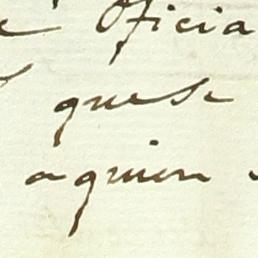 Oficia
quese
aquien